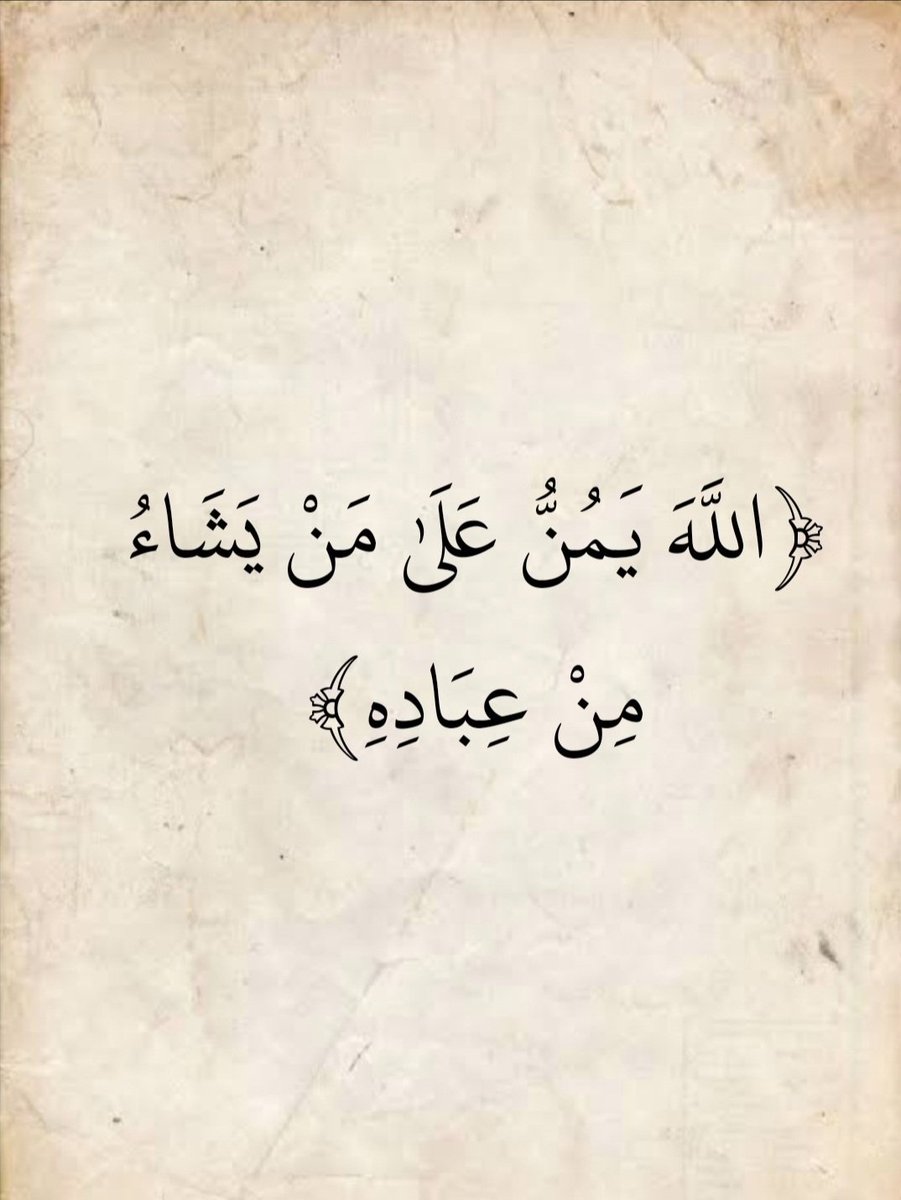 ﴿اللَّهَ يَمُنُّ عَلَىٰ مَنْ يَشَاءُ
مِنْ عِبَادِهِ﴾